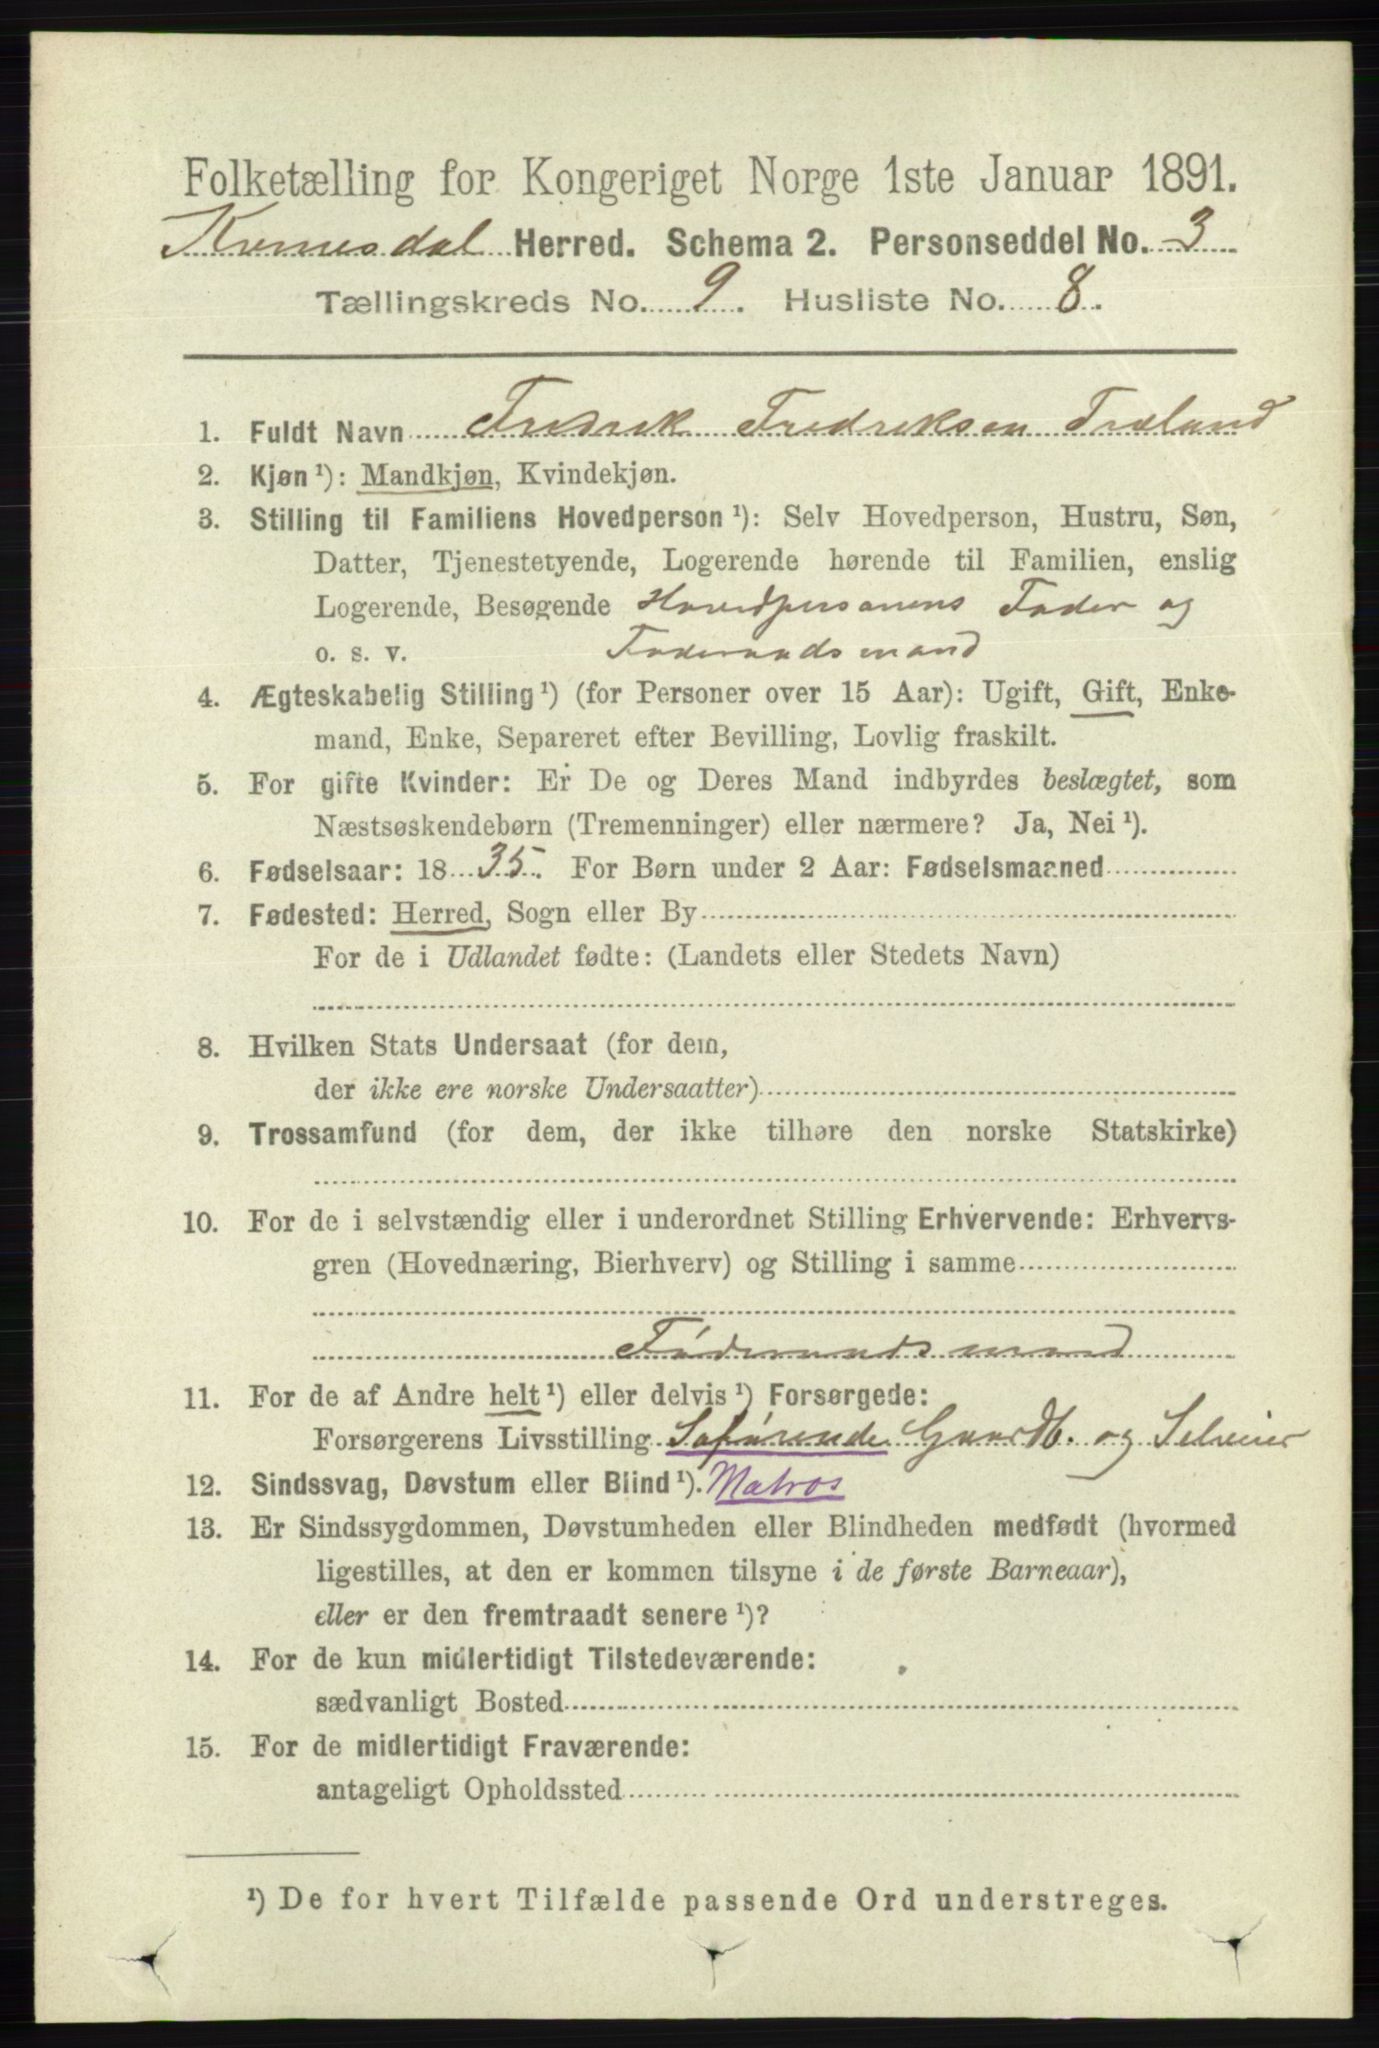 Folketælling for Kongeriget Norge 1ste Januar 1891.
Kvinesdal Herred. Schema 2. Personseddel No. 3
Tællingskreds No. 9. Husliste No. 8.
1. Fuldt Navn Fredrik Fredriksen Træland
2. Kjøn¹): Mandkjøn, Kvindekjøn.
3. Stilling til Familiens Hovedperson¹): Selv Hovedperson, Hustru, Søn,
Datter, Tjenestetyende, Logerende hørende til Familien, enslig
Logerende, Besøgende Hovedpersonens Fader og
o. s. v. Føderaadsmand
4. Ægteskabelig Stilling¹) (for Personer over 15 Aar): Ugift, Gift, Enke-
mand, Enke, Separeret efter Bevilling, Lovlig fraskilt.
5. For gifte Kvinder: Er De og Deres Mand indbyrdes beslægtet, som
Næstsøskendebørn (Tremenninger) eller nærmere? Ja, Nei¹).
6. Fødselsaar: 1835. For Børn under 2 Aar: Fødselsmaaned
7. Fødested: Herred, Sogn eller By
For de i Udlandet fødte: (Landets eller Stedets Navn)
8. Hvilken Stats Undersaat (for dem,
der ikke ere norske Undersaatter)
9. Trossamfund (for dem, der ikke tilhøre den norske Statskirke)
10. For de i selvstændig eller i underordnet Stilling Erhvervende: Erhvervs-
gren (Hovednæring, Bierhverv) og Stilling i samme
Føderaadsmand
11. For de af Andre helt¹) eller delvis¹) Forsørgede:
Forsørgerens Livsstilling Søfarende Gaardb. og Selveier
12. Sindssvag, Døvstum eller Blind¹). Matros
13. Er Sindssygdommen, Døvstumheden eller Blindheden medfødt (hvormed
ligestilles, at den er kommen tilsyne i de første Barneaar),
eller er den fremtraadt senere¹)?
14. For de kun midlertidigt Tilstedeværende:
sædvanligt Bosted
15. For de midlertidigt Fraværende:
antageligt Opholdssted
¹) De for hvert Tilfælde passende Ord understreges.